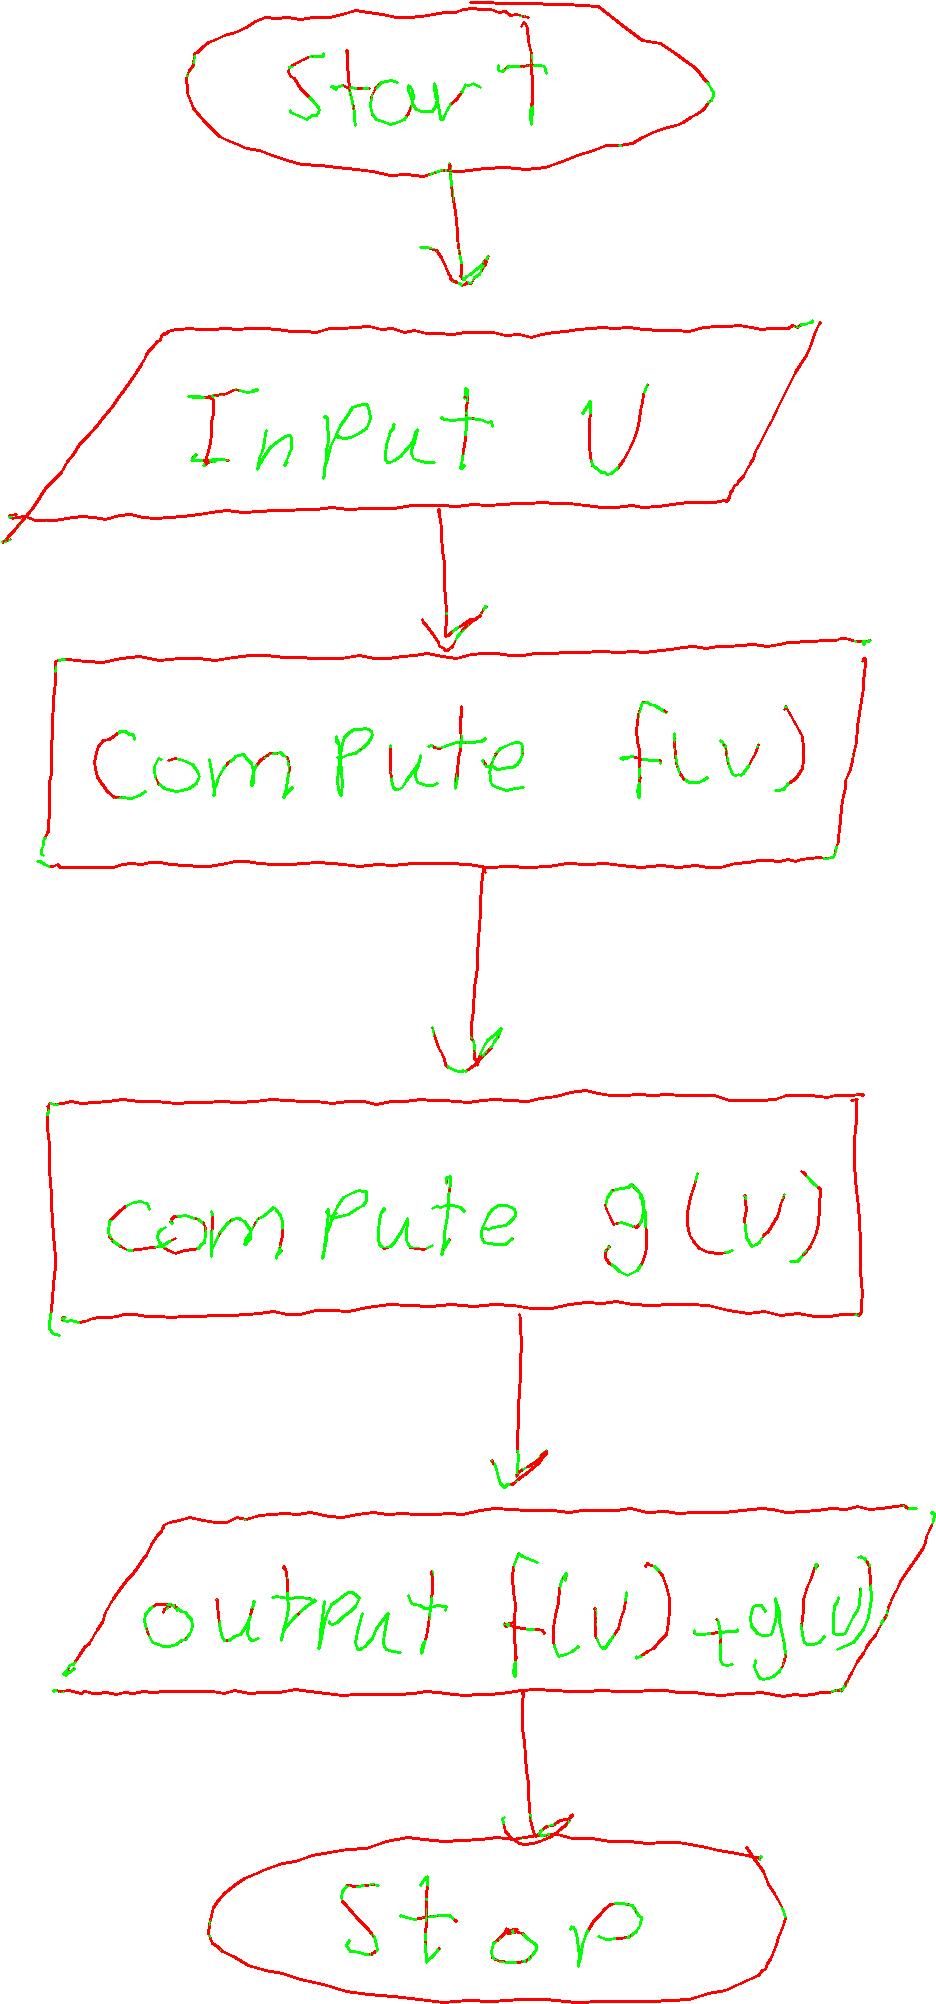 Start
Input V
Compute f(v)
compute g(v)
output f(v)+g(v)
Stop